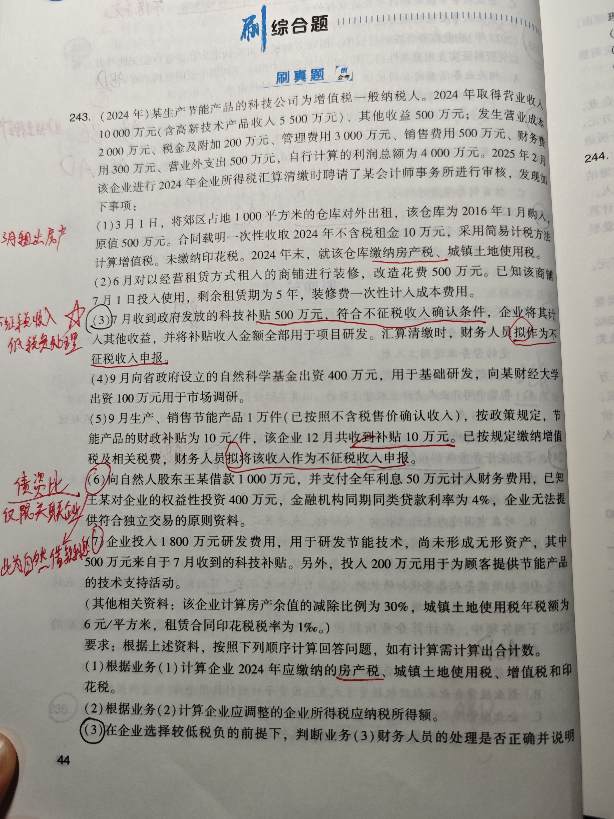 刷 综合题
刷真题
243. (2024 年)某生产节能产品的科技公司为增值税一般纳税人。2024 年取得营业收入
10 000 万元(含高新技术产品收入 5 500 万元)、其他收益 500 万元；发生营业成本
2 000 万元、税金及附加 200 万元、管理费用 3 000 万元、销售费用 500 万元、财务费
用 300 万元、营业外支出 500 万元，自行计算的利润总额为 4 000 万元。2025 年 2 月
该企业进行 2024 年企业所得税汇算清缴时聘请了某会计师事务所进行审核，发现如
下事项：
(1)3 月 1 日，将郊区占地 1 000 平方米的仓库对外出租，该仓库为 2016 年 1 月购入，
原值 500 万元。合同载明一次性收取 2024 年不含税租金 10 万元，采用简易计税方法
计算增值税。未缴纳印花税。2024 年末，就该仓库缴纳房产税、城镇土地使用税。
(2)6 月对以经营租赁方式租入的商铺进行装修，改造花费 500 万元。已知该商铺
7 月 1 日投入使用，剩余租赁期为 5 年，装修费一次性计入成本费用。
(3)7 月收到政府发放的科技补贴 500 万元，符合不征税收入确认条件，企业将其计
入其他收益，并将补贴收入金额全部用于项目研发。汇算清缴时，财务人员拟作为不
征税收入申报。
(4)9 月向省政府设立的自然科学基金出资 400 万元，用于基础研发，向某财经大学
出资 100 万元用于市场调研。
(5)9 月生产、销售节能产品 1 万件(已按照不含税售价确认收入)，按政策规定，节
能产品的财政补贴为 10 元/件，该企业 12 月共收到补贴 10 万元。已按规定缴纳增值
税及相关税费，财务人员拟将该收入作为不征税收入申报。
(6)向自然人股东王某借款 1 000 万元，并支付全年利息 50 万元计入财务费用，已知
王某对企业的权益性投资 400 万元，金融机构同期同类贷款利率为 4%，企业无法提
供符合独立交易的原则资料。
(7)企业投入 1 800 万元研发费用，用于研发节能技术，尚未形成无形资产，其中
500 万元来自于 7 月收到的科技补贴。另外，投入 200 万元用于为顾客提供节能产品
的技术支持活动。
(其他相关资料：该企业计算房产余值的减除比例为 30%，城镇土地使用税年税额为
6 元/平方米，租赁合同印花税税率为 1‰。)
要求：根据上述资料，按照下列顺序计算回答问题，如有计算需计算出合计数。
(1)根据业务(1)计算企业 2024 年应缴纳的房产税、城镇土地使用税、增值税和印
花税。
(2)根据业务(2)计算企业应调整的企业所得税应纳税所得额。
(3)在企业选择较低税负的前提下，判断业务(3)财务人员的处理是否正确并说明
44
3月租出房产
债资比
244.